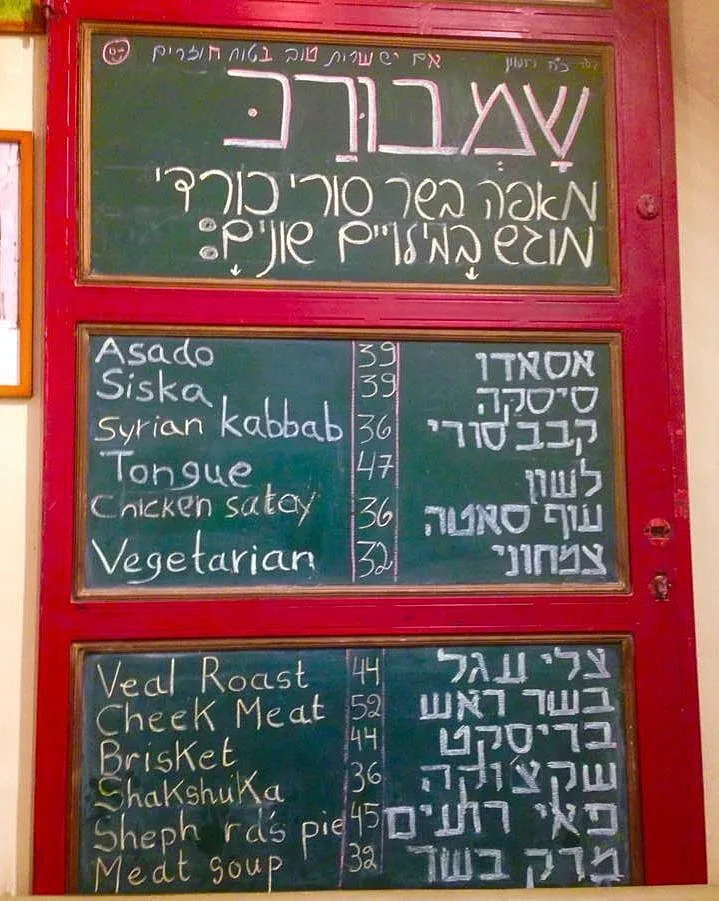 אם יש שרות טוב בטוח חוזרים
שָמְבּוּרַכּ
מאפה בשר סורי כורדי
מוגש במילויים שונים:
Asado 39 אסאדו
Siska 39 סיסקה
Syrian kabbab 36 קבב סורי
Tongue 47 לשון
Chicken satay 36 עוף סאטה
Vegetarian 32 צמחוני
Veal Roast 44 צלי עגל
Cheek Meat 52 בשר ראש
Brisket 44 בריסקט
Shakshuka 36 שקצ'וקה
Sheph rd's pie 45 פאי רועים
Meat soup 32 מרק בשר